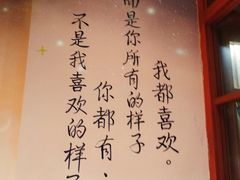 不是我喜欢的样子
你都有,
而是你所有的样子
我都喜欢。